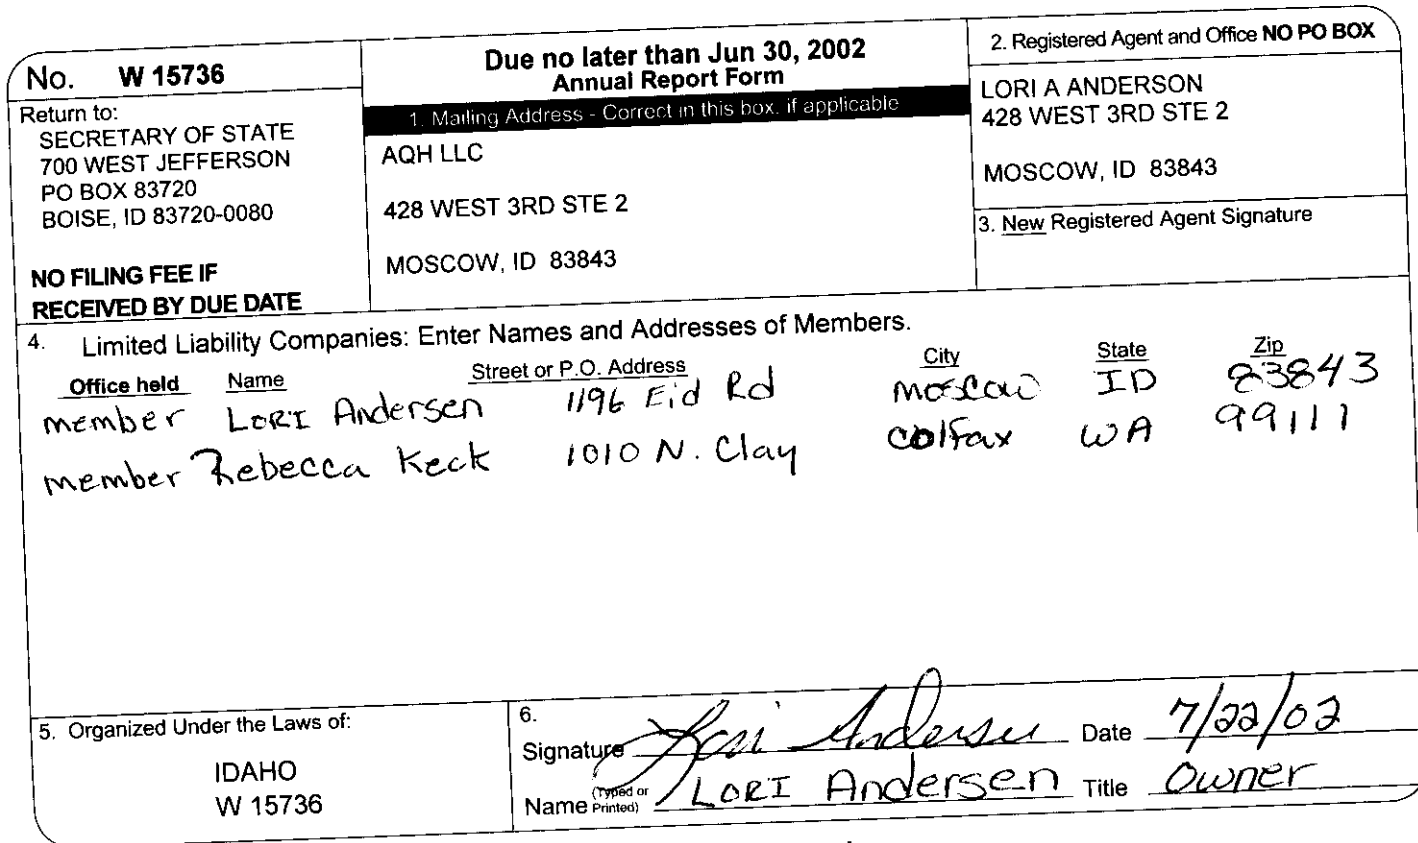 No. W 15736
Return to:
SECRETARY OF STATE
700 WEST JEFFERSON
PO BOX 83720
BOISE, ID 83720-0080
NO FILING FEE IF
RECEIVED BY DUE DATE
Due no later than Jun 30, 2002
Annual Report Form
1. Mailing Address - Correct in this box, if applicable
AQH LLC
428 WEST 3RD STE 2
MOSCOW, ID 83843
2. Registered Agent and Office NO PO BOX
LORI A ANDERSON
428 WEST 3RD STE 2
MOSCOW, ID 83843
3. New Registered Agent Signature
4. Limited Liability Companies: Enter Names and Addresses of Members.
Office held Name Street or P.O. Address City State Zip
member LORI Andersen 1196 Eid Rd Moscow ID 83843
member Rebecca Keck 1010 N. Clay Colfax WA 99111
5. Organized Under the Laws of:
IDAHO
W 15736
6.
Signature Lori Andersen Date 7/22/02
Name (Typed or Printed) LORI Andersen Title Owner